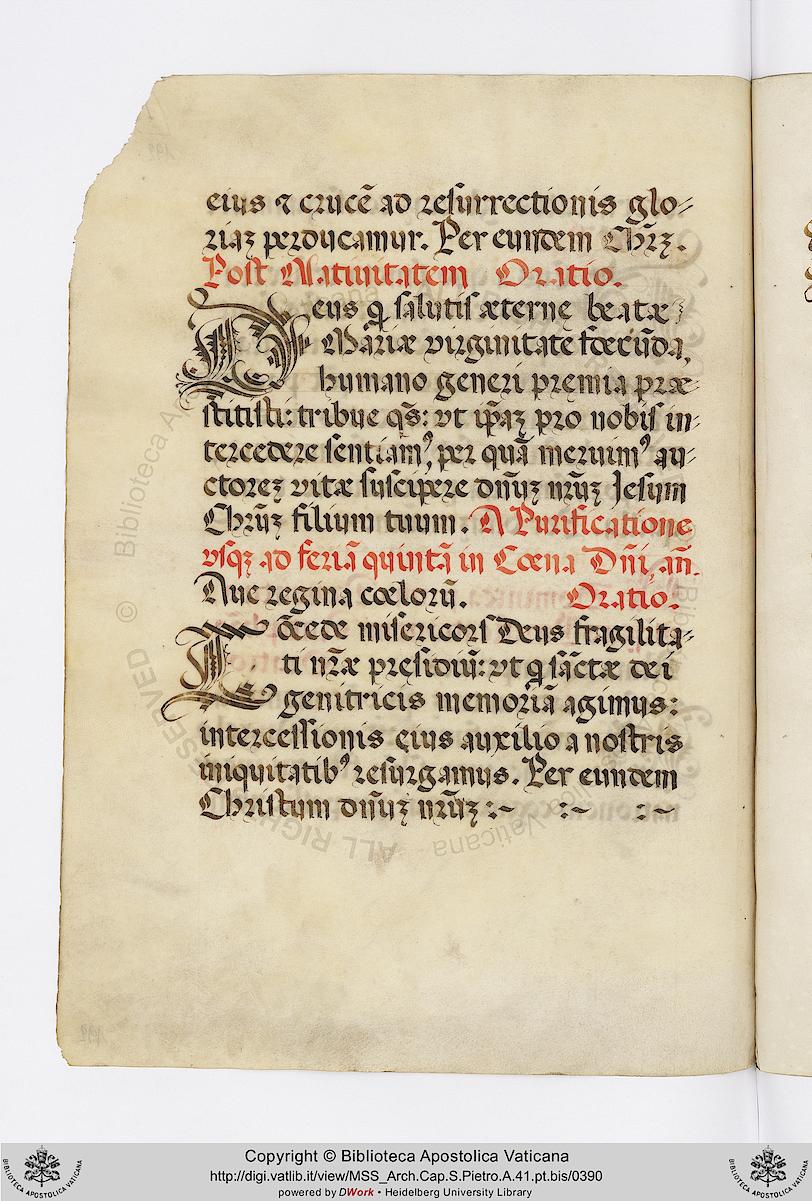 eius ⁊ crucē ad resurrectionis glo-
riaꝫ perducamur. Per eundem Chr̄ꝫ.
Post Natiuitatem Oratio.
Deus q̄ salutis æterne beatæ
Mariæ virginitate fœcūda,
humano generi premia præ-
stitisti: tribue q̄s: vt ip̄aꝫ pro nobis in-
tercedere sentiam᾽, per quā meruim᾽ au-
ctoreꝫ vitæ suscipere dn̄uꝫ nr̄uꝫ Jesum
Chr̄uꝫ filium tuum. A Purificatione
vsqꝫ ad feriā quintā in Cœna Dn̄i, an̄.
Aue regina cœlorū. Oratio.
Cōcede misericors Deus fragilita-
ti nr̄æ presidiū: vt q̄ sāctæ dei
genitricis memoriā agimus:
intercessionis eius auxilio a nostris
iniquitatib᾽ resurgamus. Per eundem
Christum dn̄uꝫ nr̄uꝫ :~ :~ :~
© Biblioteca Apostolica Vaticana
ALL RIGHTS RESERVED
Copyright © Biblioteca Apostolica Vaticana
http://digi.vatlib.it/view/MSS_Arch.Cap.S.Pietro.A.41.pt.bis/0390
powered by DWork • Heidelberg University Library